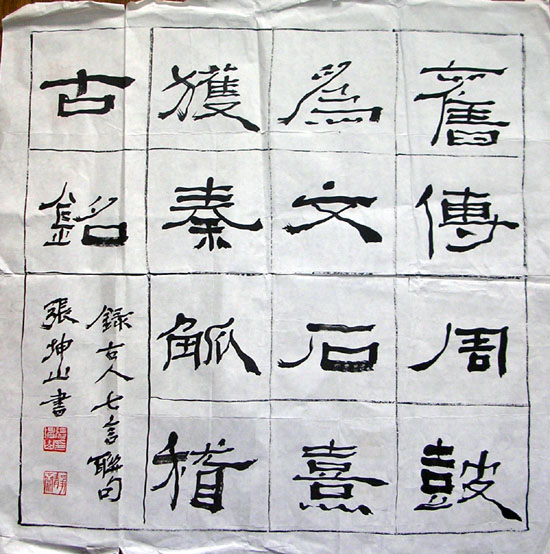 舊傳周鼓
爲文石熹
獲秦觚稽
古銘
錄古人七言聯句
張坤山書